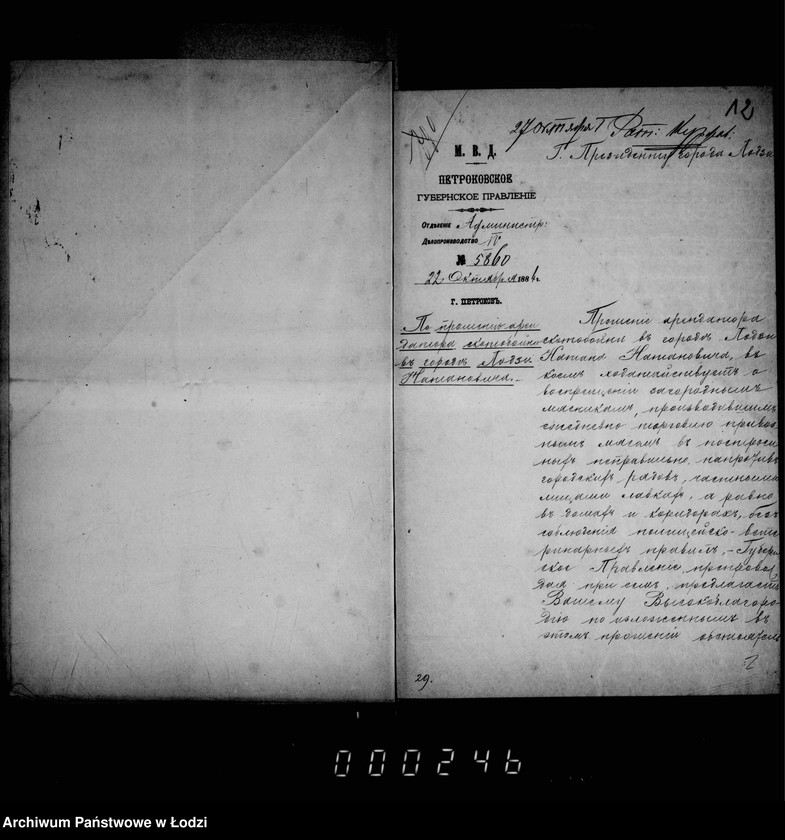 12
27 октября
Г. Президенту города Лодзи
М. В. Д.
ПЕТРОКОВСКОЕ
ГУБЕРНСКОЕ ПРАВЛЕНІЕ
Отдѣленіе Администр.
Дѣлопроизводство IV
№ 5860
22 Октября 188
Г. ПЕТРОКОВЪ.
По прошенію арен
датора скотобойни
въ городѣ Лодзи
Натановича.
Прошеніе арендатора
скотобойни въ городѣ Лодзи
Натана Натановича, въ
коемъ ходатайствуетъ о
воспрещеніи загороднымъ
мясникамъ, производившимъ
ежедневно торговлю привоз
нымъ мясомъ въ построен
ныхъ неправильно, напротивъ
городскихъ рядовъ, частными
лицами лавкахъ, а равно
въ домахъ и коридорахъ, безъ
соблюденія полицейско-вете
ринарныхъ правилъ, - Губерн
ское Правленіе, препровож
дая при семъ, предлагаетъ
Вашему Высокоблагоро
дію по изложеннымъ въ
этомъ прошеніи обстоятель
29.
000246
Archiwum Państwowe w Łodzi